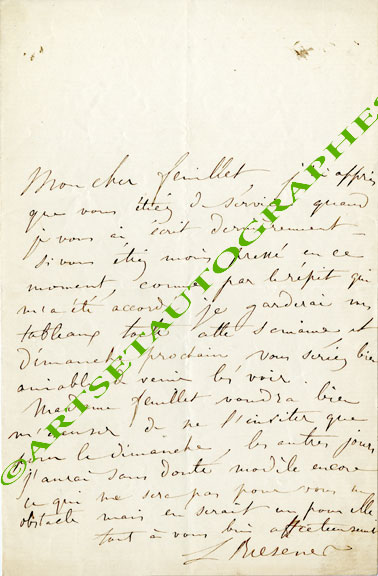 Mon cher feuillet j'ai appris
que vous étiez de service quand
je vous ai écrit dernièrement
si vous étiez moins pressé en ce
moment, comme par le répit qui
m'a été accordé je garderai mes
tableaux toute cette semaine et
dimanche prochain, vous seriez bien
aimable de venir les voir.
Madame feuillet voudra bien
m'excuser de ne l'inviter que
pour le dimanche, les autres jours
j'aurai sans doute modèle encore
ce qui ne sera pas pour vous un
obstacle mais en serait un pour elle
tout à vous bien affectueusement
L Riesener
©ARTSETAUTOGRAPHES